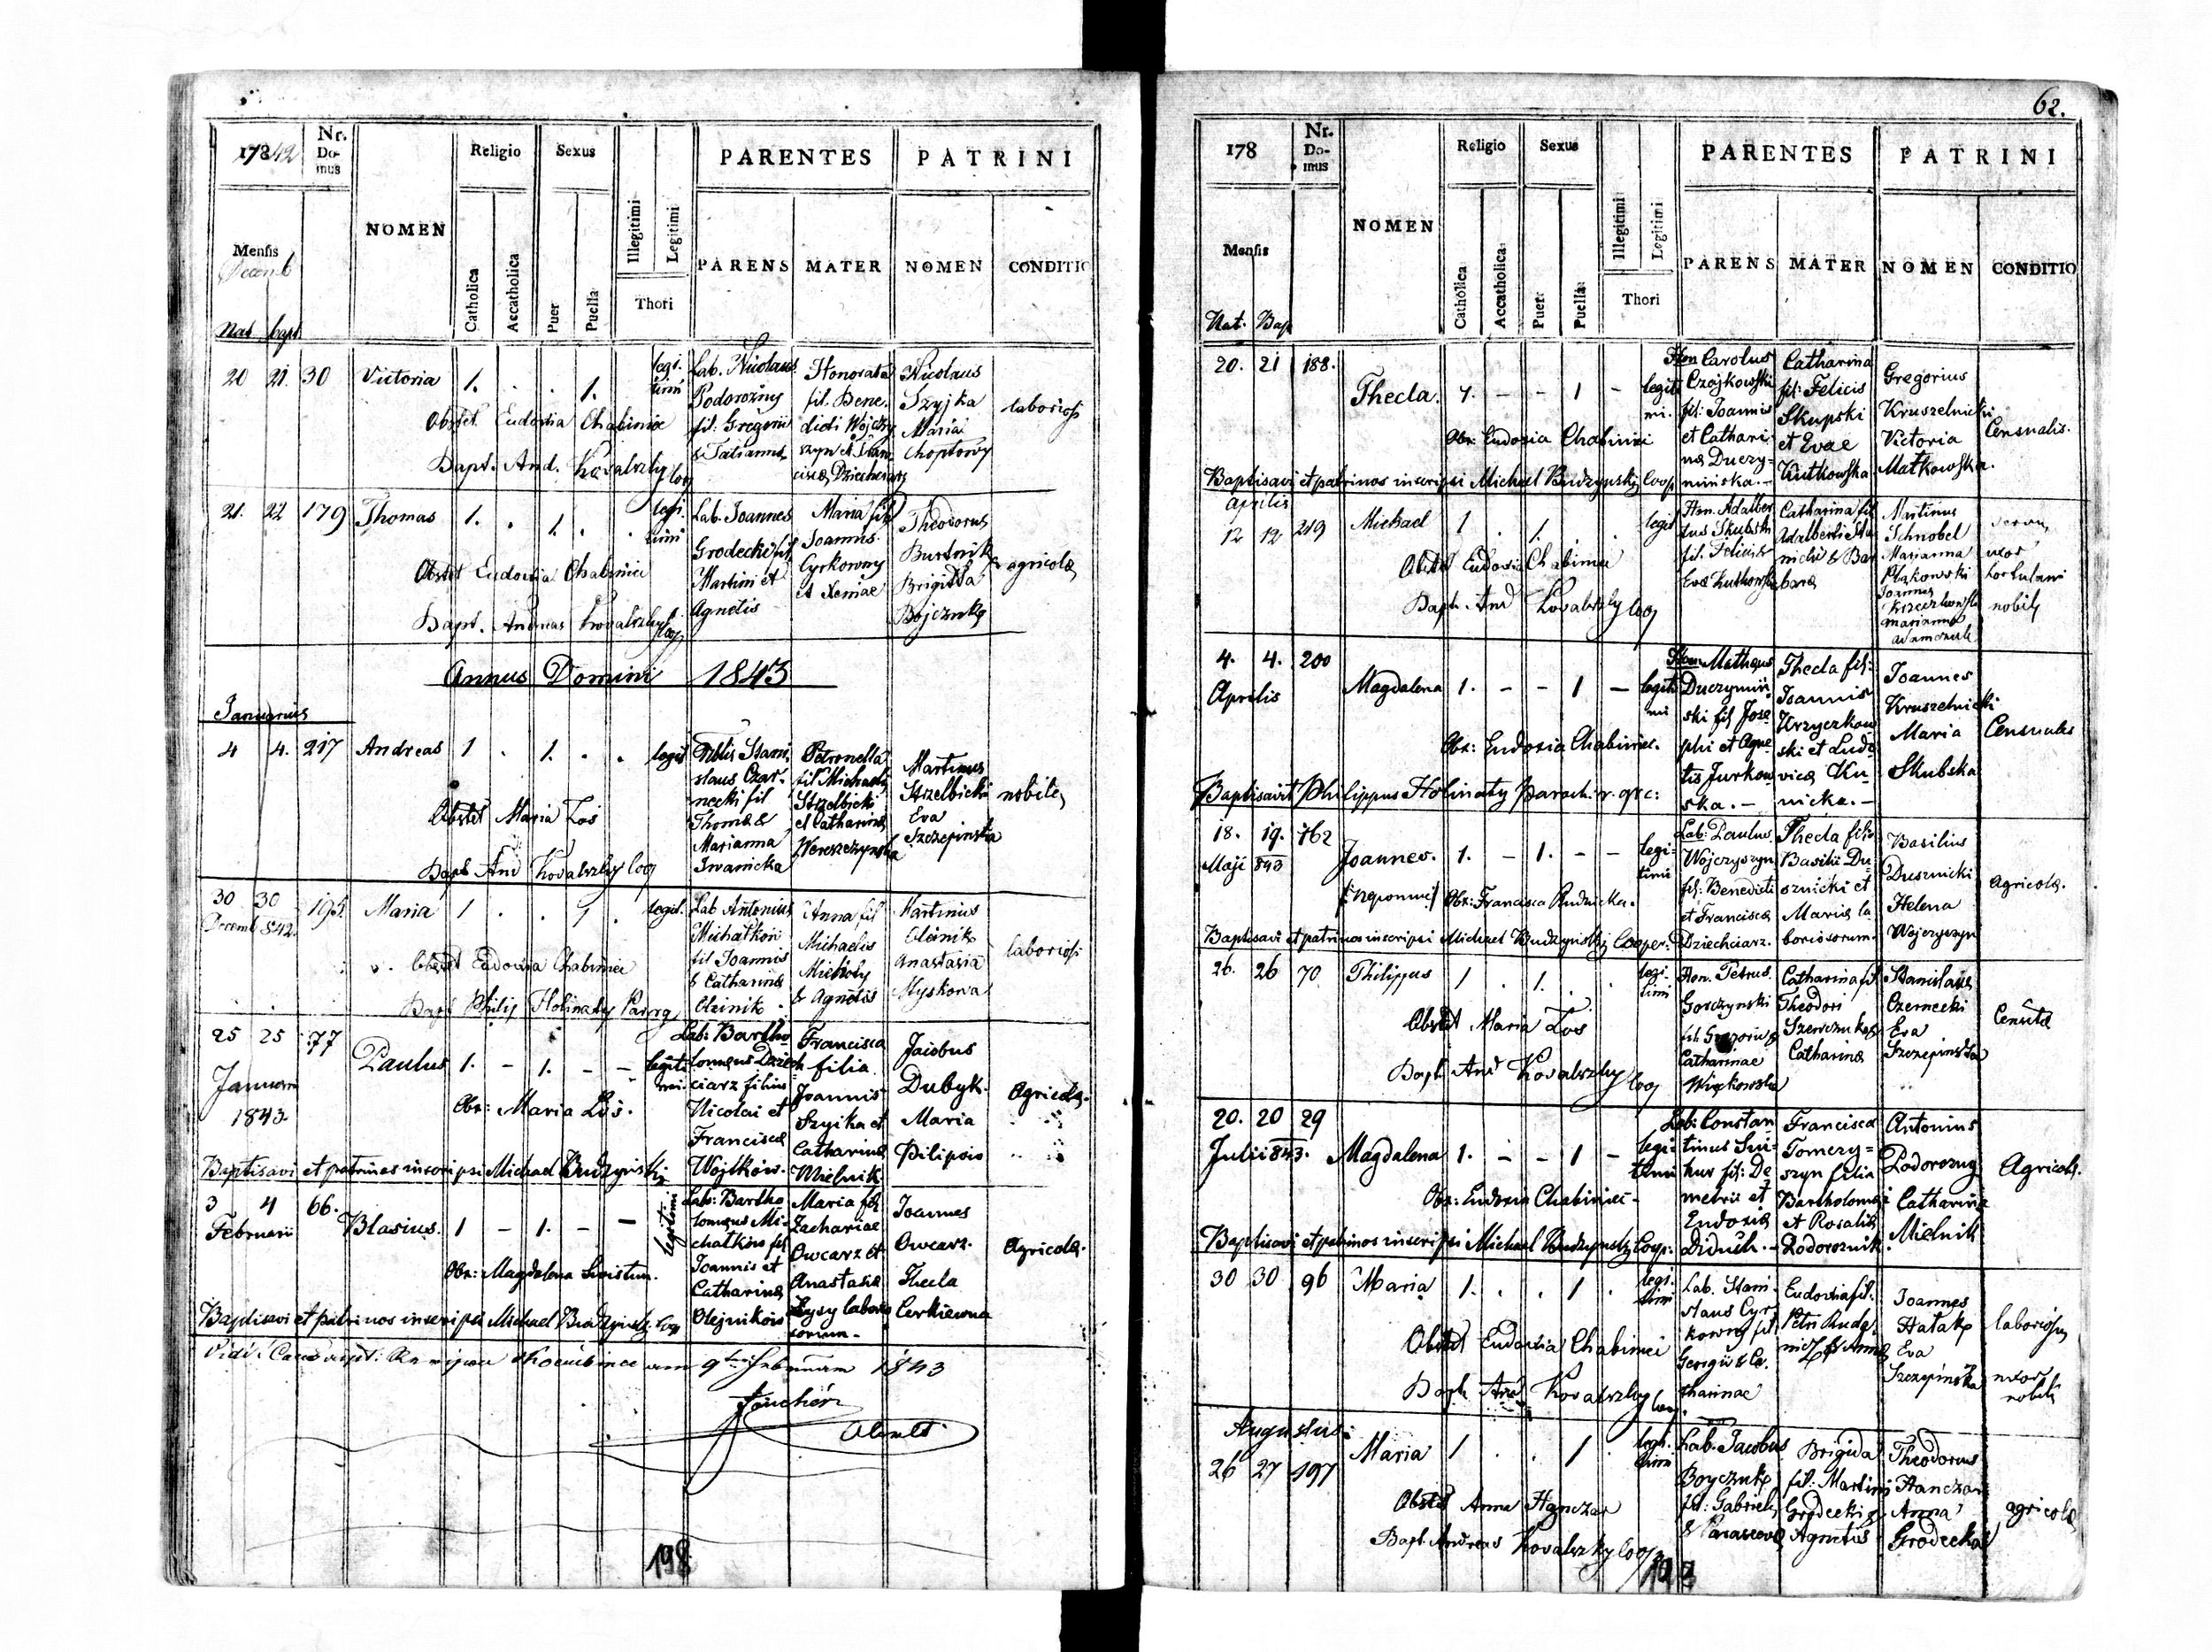 17842
Nr. Domus
NOMEN
Religio
Sexus
PARENTES
PATRINI
Mensis
Decemb
Catholica
Accatholica
Puer
Puella
Illegitimi
Legitimi
Thori
PARENS
MATER
NOMEN
CONDITIO
Nat bapt
20 21. 30 Victoria 1. . . 1. legi.
timi
Lab. Nicolaus
Podorozny
fil: Gregorii
& Tatianna
Honorata
fil. Bene.
dicti Wojczy
szyn et Fran
cisca Dziechciarz
Nicolaus
Szyjka
Maria
Choptowy
laboriosi
Obstet. Eudoxia Chabiniec
Bapt. And. Kovalszky Coop
21. 22 179 Thomas 1. . 1. . legi.
timi
Lab. Joannes
Grodecki fil.
Martini et
Agnetis
Maria fil
Joannis
Cyrkowny
et Xeniae
Theodorus
Burtnik
Brigitta
Bojczuk
agricola
Obstet Eudoxia Chabiniec
Bapt. Andreas Kovalszky Coop
Annus Domini 1843
Januarius
4 4. 217 Andreas 1 . 1. . . legit
Nblis Stani
slaus Czar
necki fil
Thomae &
Marianna
Iwanicka
Petronella
fil Michaelis
Strzelbicki
et Catharina
Wereszczynska
Martinus
Strzelbicki
Eva
Szczepinska
nobiles
Obstet Maria Łos
Bapt And Kovalszky Coop
30 30 195. Maria 1 . . 1 . legit.
Decemb 842.
Lab Antonius
Michatkow
fil Joannis
& Catharina
Oleinik
Anna fil
Michaelis
& Agnetis
Martinus
Oleinik
Anastasia
Myskowa
laboriosi
Obstet Eudoxia Chabiniec
Bapt Philip Holinaty Par rg
25 25 77 Paulus 1. - 1. - - legiti
mi.
Januarii
1843
Lab: Bartho
lomeus Dziech
ciarz filius
Nicolai et
Francisca
Wojtkow.
Francisca
filia
Joannis
Szyika et
Catharina
Mielnik.
Jacobus
Dubyk.
Maria
Pilipow
Agricola.
Obs: Maria Łos.
Baptisavi et patrinos inscripsi Michael Budzynski
3 4 66. Blasius. 1 - 1. - - legitimi
Februarii
Lab: Bartho
lomeus Mi-
chatkow fil
Joannis et
Catharina
Olejnikow
Maria fil
Zachariae
Owcarz et
Anastasia
Łysy laborio
sorum.
Joannes
Owcarz.
Thecla
Cerkiewna
Agricola.
Obs: Magdalena Swistun.
Baptisavi et patrinos inscripsi Michael Budzynski Coop
1843
198
62.
178
Nr. Domus
NOMEN
Religio
Sexus
PARENTES
PATRINI
Mensis
Catholica
Accatholica
Puer
Puella
Illegitimi
Legitimi
Thori
PARENS
MATER
NOMEN
CONDITIO
Nat. Bap
20. 21 188. Thecla. 1. - - 1 - legiti
mi.
Hon Carolus
Czojkowski
fil: Joannis
et Cathari
na Duczy-
minska.-
Catharina
fil: Felicis
Skupski
et Evae
Kutkowska
Gregorius
Kruszelnicki
Victoria
Matkowska.
Censualis.
Obs: Eudoxia Chabiniec
Baptisavi et patrinos inscripsi Michael Budzynski Coop
Aprilis
12 12 219 Michael 1 . 1. . legit
Hon. Adalber
tus Skubski
fil. Felicis &
Eva Kutkowska
Catharina fil
Adalberti
& Bar
bara
Martinus
Schnobel
Marianna
Joannes
Marianna
Adamczuk
uxor
hortulani
nobili
Obstet Eudoxia Chabiniec
Bapt. And Kovalszky Coop
4. 4. 200 Magdalena 1. - - 1 - legiti
mi
Aprilis
Hon. Matheus
Duczymin
ski fil Jose
phi et Agne
tis Jurkow
ska.-
Thecla fil:
Joannis
Krzyczkow
ski et Ludo
vica Ku-
nicka.-
Joannes
Kruszelnicki
Maria
Skubska
Censuales
Obs: Eudoxia Chabiniec.
Baptisavit Philippus Holinaty Paroch. r. grc:
18. 19. 162 Joannes. 1. - 1. - - legi-
timi
Maji 843
Lab: Paulus
Wojczyszyn
fil: Benedicti
et Francisca
Dziechciarz.
Thecla filia
Basilii Du
sznicki et
Maria la
boriosorum.
Basilius
Dusznicki
Helena
Wojczyszyn
Agricola.
Obs: Francisca Rudnicka.
Baptisavi et patrinos inscripsi Michael Budzynski Cooper:
26. 26 70 Philippus 1 . 1. . . legi-
timi
Hon. Petrus
Gorczynski
fil: Gregorii &
Catharinae
Więckowska
Catharina fil
Theodori
Szewczuk &
Catharina
Stanislaus
Czernecki
Eva
Szczepinska
Obstet Maria Łos
Bapt And Kovalszky Coop
20. 20 29 Magdalena 1. - - 1 - legi-
timi
Julii 843.
Lab: Constan
tinus Swi-
hur fil: De
metrii et
Eudoxia
Diduch.-
Francisca
Tomczy-
szyn filia
Bartholomei
et Rosalia
Podoroznik.
Antonius
Podorozny
Catharina
Mielnik
Agricola.
Obs: Eudoxia Chabiniec-
Baptisavi et patrinos inscripsi Michael Budzynski Coop:
30 30 96 Maria 1. . . 1 . legi-
timi
Lab. Stani
slaus Cyr
kowny fil
Georgii & Ca.
tharinae
Eudoxia fil.
Petri Rud
nicki & Anna
Joannes
Hatak
Eva
Szczepinska
laboriosus
uxor
nobilis
Obstet Eudoxia Chabiniec
Bapt And Kovalszky Coop
Augustus.
26 27 197 Maria 1 . . 1 . legi-
timi
Lab. Jacobus
Boyczuk
fil: Gabrieli
& Parascevae
Brigida
fil: Martini
Grodecki &
Agnetis
Theodorus
Hanczar
Anna
Grodecka
agricola
Obstet Anna Hanczar
Bapt. Andreas Kovalszky Coop